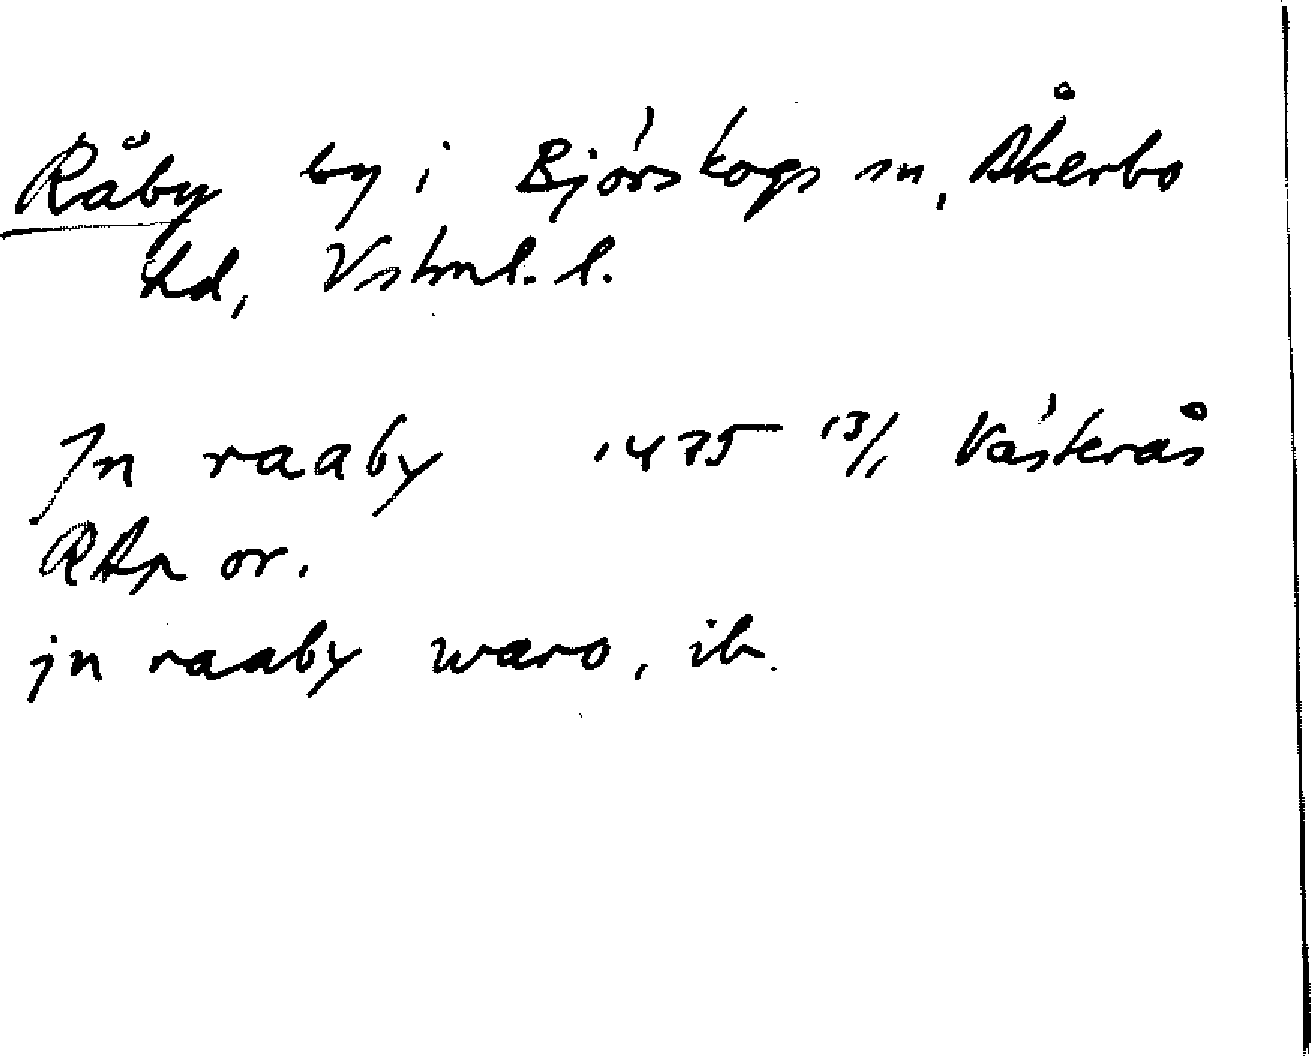 Råby by i Björskogs sn, Åkerbo
hd, Vstml. l.
Jn raaby 1475 13/1 Västerås
RAp or.
jn raaby waro, ib.